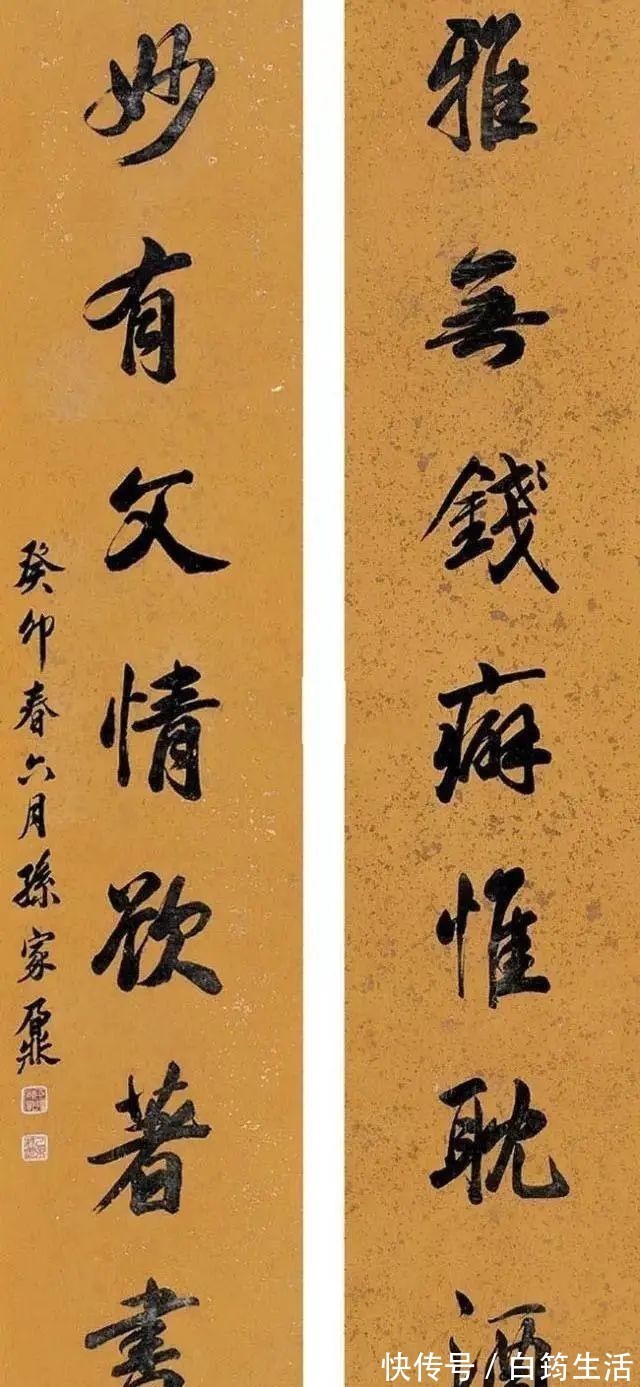 雅無錢癖惟耽酒
妙有文情欲著書
癸卯春六月孫家鼐
快传号/白筠生活